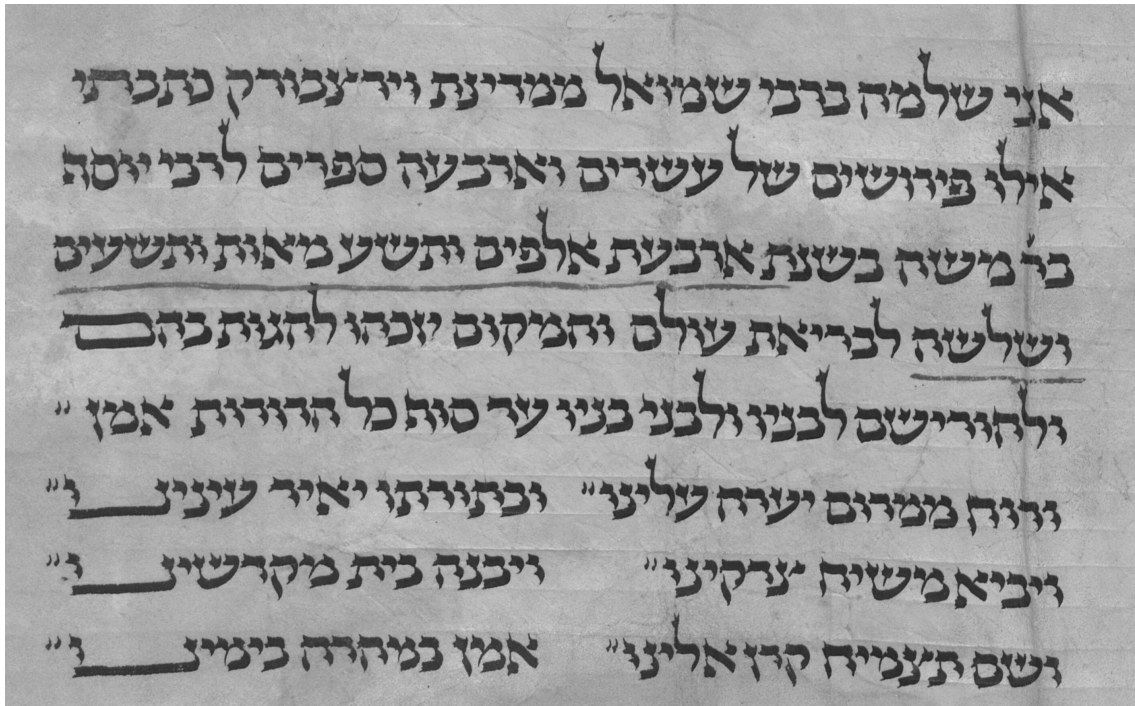 אני שלמה ברבי שמואל ממדינת וירצבורק כתבתי
אילו פירושים של עשרים וארבעה ספרים לרבי יוסה
בר׳ משה בשנת ארבעת אלפים ותשע מאות ותשעים
ושלשה לבריאת עולם והמקום יזכהו להגות בהם
ולהורישם לבניו ולבני בניו עד סות כל הדורות אמן ״
ורוח ממרום יערה עלינו ״ ובתורתו יאיר עינינו ״
ויביא משיח צדקינו ״ ויבנה בית מקדשינו ״
ושם תצמיח קרן אלינו ״ אמן במהרה בימינו ״